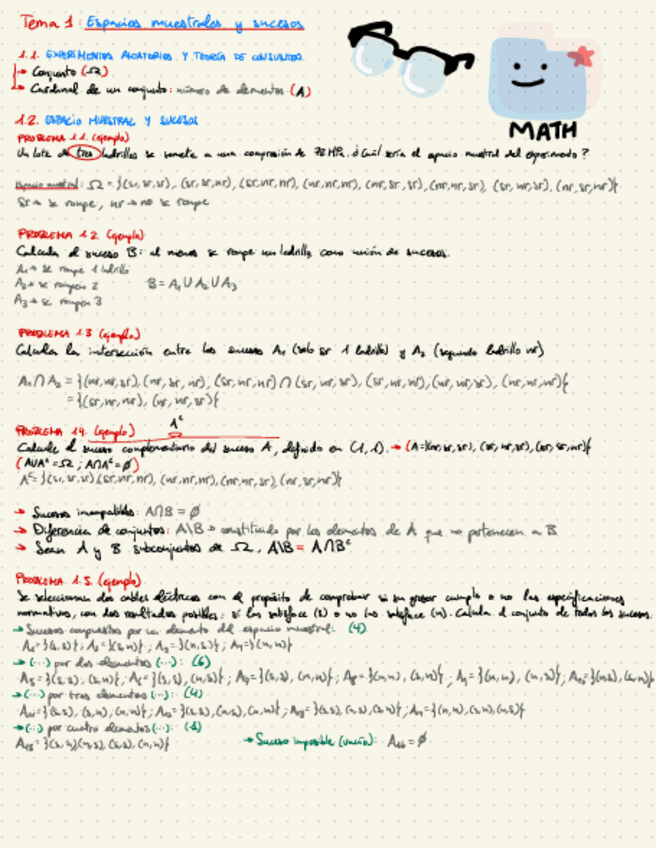 Tema 1: Espacios muestrales y sucesos
MATH
1.1. EXPERIMENTOS ALEATORIOS Y TEORÍA DE CONJUNTOS.
→ Conjunto (Ω)
→ Cardinal de un conjunto: número de elementos (A)
1.2. ESPACIO MUESTRAL Y SUCESOS
PROBLEMA 1.1. (ejemplo)
Un lote de tres ladrillos se somete a una compresión de 72 MP. ¿Cuál sería el espacio muestral del experimento?
Espacio muestral: Ω = {(sr, sr, sr), (sr, sr, nr), (sr, nr, nr), (nr, nr, nr), (nr, sr, sr), (nr, nr, sr), (sr, nr, sr), (nr, sr, nr)}
sr → se rompe, nr → no se rompe
PROBLEMA 1.2 (ejemplo)
Calcula el suceso B: al menos se rompe un ladrillo, como unión de sucesos.
A₁ → se rompe 1 ladrillo
A₂ → se rompen 2 B = A₁ ∪ A₂ ∪ A₃
A₃ → se rompen 3
PROBLEMA 1.3 (ejemplo)
Calcula la intersección entre los sucesos A₁ (solo sr 1 ladrillo) y A₂ (segundo ladrillo nr)
A₁ ∩ A₂ = {(nr, nr, sr), (nr, sr, nr), (sr, nr, nr) ∩ (sr, nr, sr), (sr, nr, nr), (nr, nr, sr), (nr, nr, nr)}
= {(sr, nr, nr), (nr, nr, sr)}
PROBLEMA 1.4. (ejemplo) Aᶜ
Calcule el suceso complementario del suceso A, definido en (1,1). → (A={(nr, sr, sr), (sr, nr, sr), (sr, sr, nr)}
(A∪Aᶜ = Ω ; A∩Aᶜ = ∅)
Aᶜ = {(sr, sr, sr), (sr, nr, nr), (nr, nr, nr), (nr, nr, sr), (nr, sr, nr)}
→ Sucesos incompatibles: A∩B = ∅
→ Diferencia de conjuntos: A\B → constituido por los elementos de A que no pertenecen a B
→ Sean A y B subconjuntos de Ω, A\B = A∩Bᶜ
PROBLEMA 1.5. (ejemplo)
Se seleccionan dos cables eléctricos con el propósito de comprobar si su grosor cumple o no las especificaciones
normativas, con dos resultados posibles: si las satisface (s) o no las satisface (n). Calcula el conjunto de todos los sucesos.
→ Sucesos compuestos por un elemento del espacio muestral: (4)
A₁ = {(s,s)}; A₂ = {(s,n)}; A₃ = {(n,s)}; A₄ = {(n,n)}
→ (...) por dos elementos (...): (6)
→ (...) por tres elementos (...): (4)
→ (...) por cuatro elementos (...): (1)
A₁₅ = {(s,n)(n,s), (s,s), (n,n)} → Suceso imposible (vacío): A₁₆ = ∅